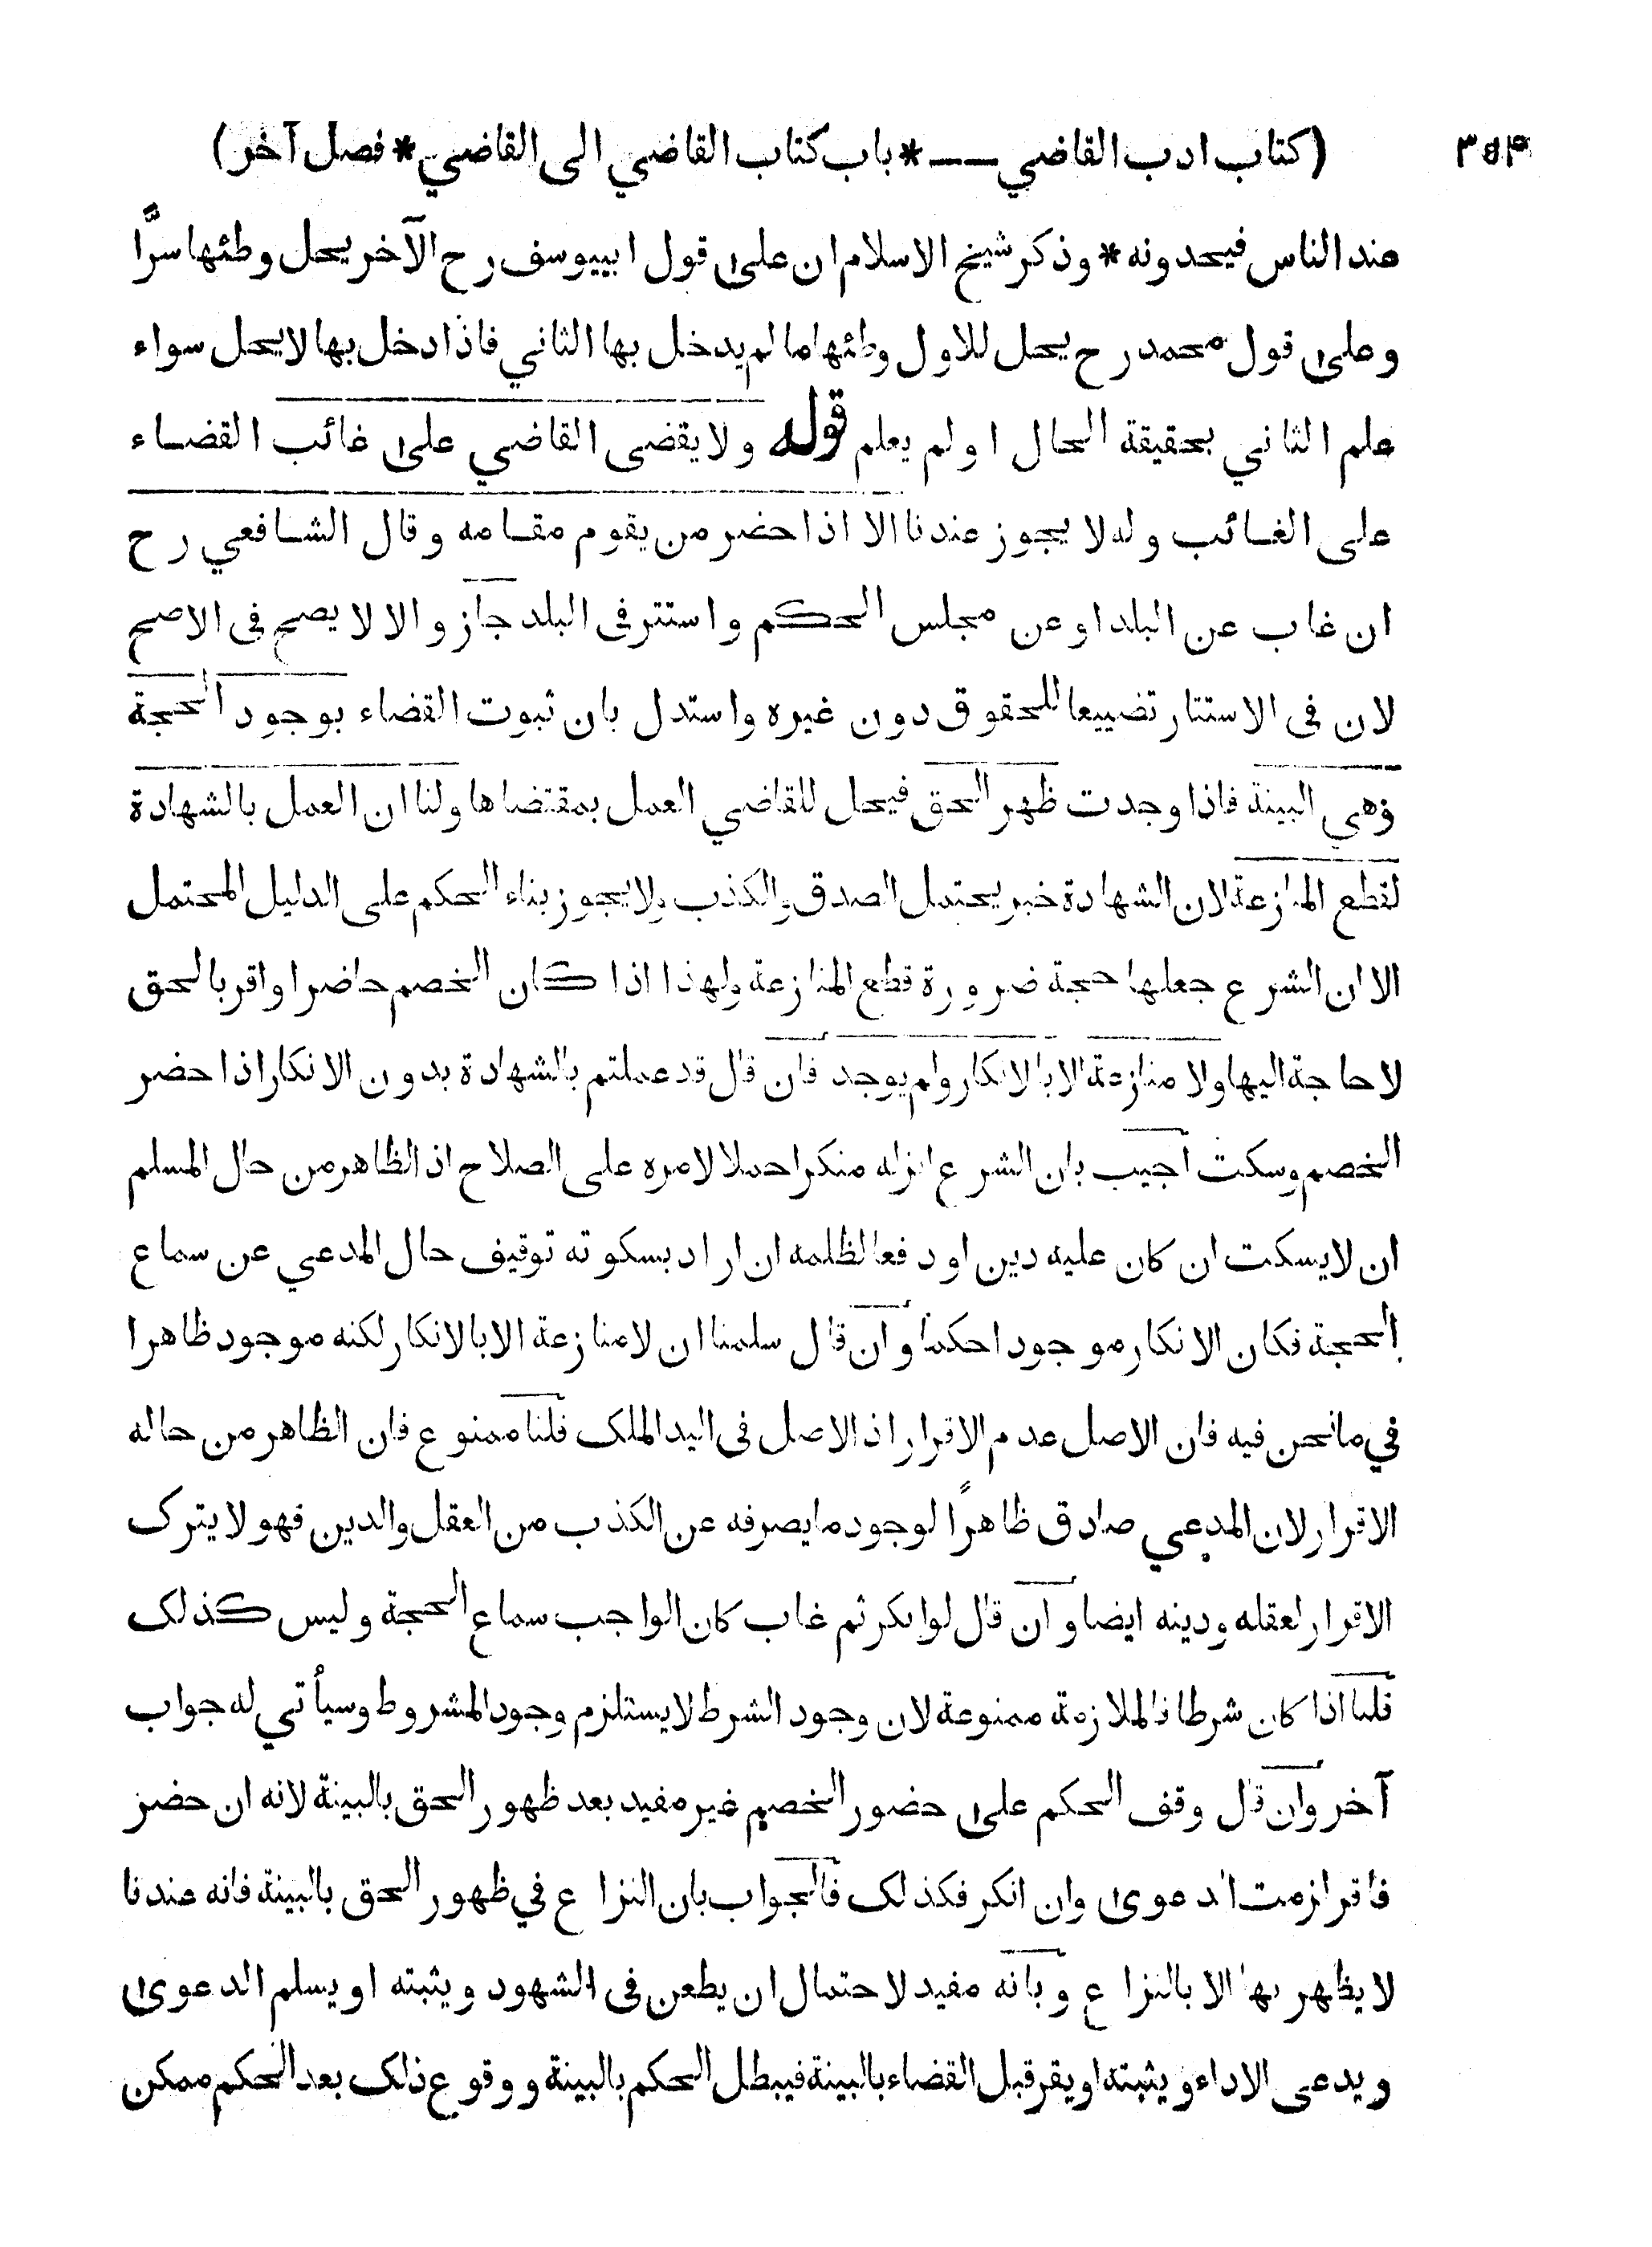 (كتاب ادب القاضي —— * باب كتاب القاضي الى القاضي * فصل آخر) ٣٥٤
عند الناس فيحدونه * وذكر شيخ الاسلام ان على قول ابييوسف رح الآخر يحل وطئها سرًّا
وعلى قول محمد رح يحل للاول وطئها ما لم يدخل بها الثاني فاذا دخل بها لا يحل سواء
علم الثاني بحقيقة الحال اولم يعلم قوله ولا يقضى القاضي على غائب القضاء
على الغائب وله لا يجوز عندنا الا اذا حضر من يقوم مقامه وقال الشافعي رح
ان غاب عن البلد او عن مجلس الحكم واستتر فى البلد جاز والا لا يصح فى الاصح
لان فى الاستتار تضييعا للحقوق دون غيره واستدل بان ثبوت القضاء بوجود الحجة
وهي البينة فاذا وجدت ظهر الحق فيحل للقاضي العمل بمقتضاها ولنا ان العمل بالشهادة
لقطع المنازعة لان الشهادة خبر يحتمل الصدق والكذب ولا يجوز بناء الحكم على الدليل المحتمل
الا ان الشرع جعلها حجة ضرورة قطع المنازعة ولهذا اذا كان الخصم حاضرا واقر بالحق
لا حاجة اليها ولا منازعة الا بالانكار ولم يوجد فان قال قد عملتم بالشهادة بدون الانكار اذا حضر
الخصم وسكت اجيب بان الشرع انزله منكرا حملا لامره على الصلاح اذ الظاهر من حال المسلم
ان لا يسكت ان كان عليه دين او دفعا لظلمه ان اراد بسكوته توقيف حال المدعي عن سماع
الحجة فكان الانكار موجودا حكما وان قال سلمنا ان لا منازعة الا بالانكار لكنه موجود ظاهرا
في ما نحن فيه فان الاصل عدم الاقرار اذ الاصل فى اليد الملك قلنا ممنوع فان الظاهر من حاله
الاقرار لان المدعي صادق ظاهرًا لوجود ما يصرفه عن الكذب من العقل والدين فهو لا يترك
الاقرار لعقله ودينه ايضا وان قال لو انكر ثم غاب كان الواجب سماع الحجة وليس كذلك
قلنا اذا كان شرطا فالملازمة ممنوعة لان وجود الشرط لا يستلزم وجود المشروط وسيأتي له جواب
آخر وان قال وقف الحكم على حضور الخصم غير مفيد بعد ظهور الحق بالبينة لانه ان حضر
فاقر لزمت الدعوى وان انكر فكذلك فالجواب بان النزاع في ظهور الحق بالبينة فانه عندنا
لا يظهر بها الا بالنزاع وبانه مفيد لاحتمال ان يطعن فى الشهود ويثبته او يسلم الدعوى
ويدعى الاداء ويثبته او يقر قبل القضاء بالبينة فيبطل الحكم بالبينة ووقوع ذلك بعد الحكم ممكن